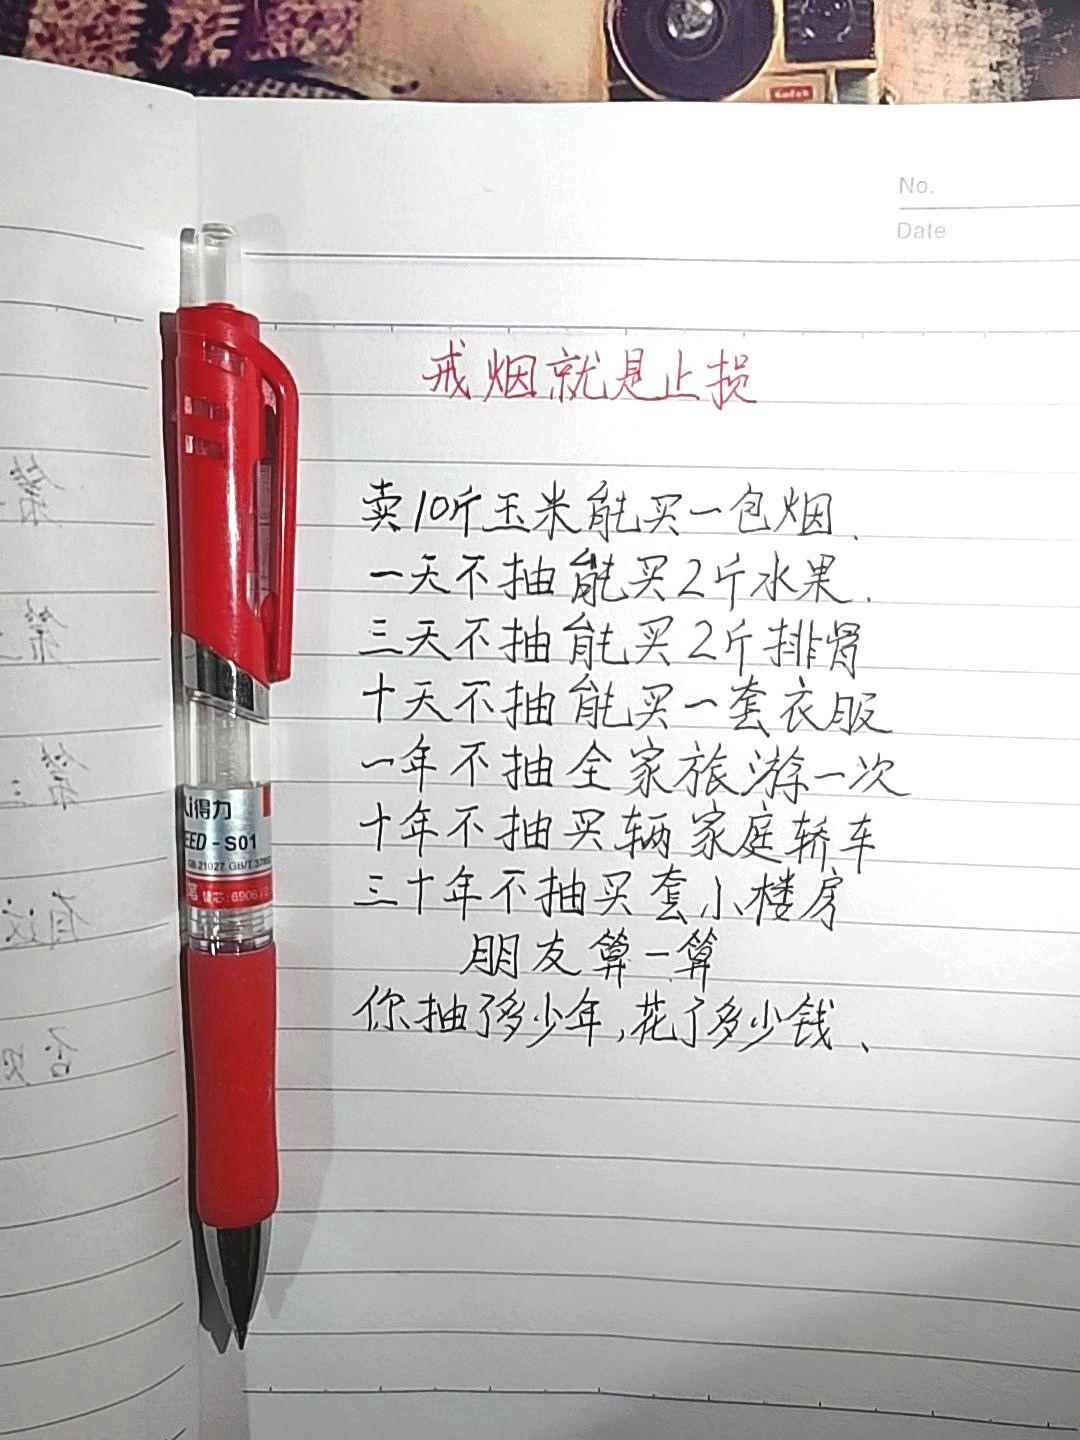 No.
Date
戒烟就是止损
卖10斤玉米能买一包烟、
一天不抽能买2斤水果、
三天不抽能买2斤排骨
十天不抽能买一套衣服
一年不抽全家旅游一次
十年不抽买辆家庭轿车
三十年不抽买套小楼房
朋友算一算
你抽了多少年,花了多少钱、
Li得力
EED-S01
GB 21027 GB/T
Kodak